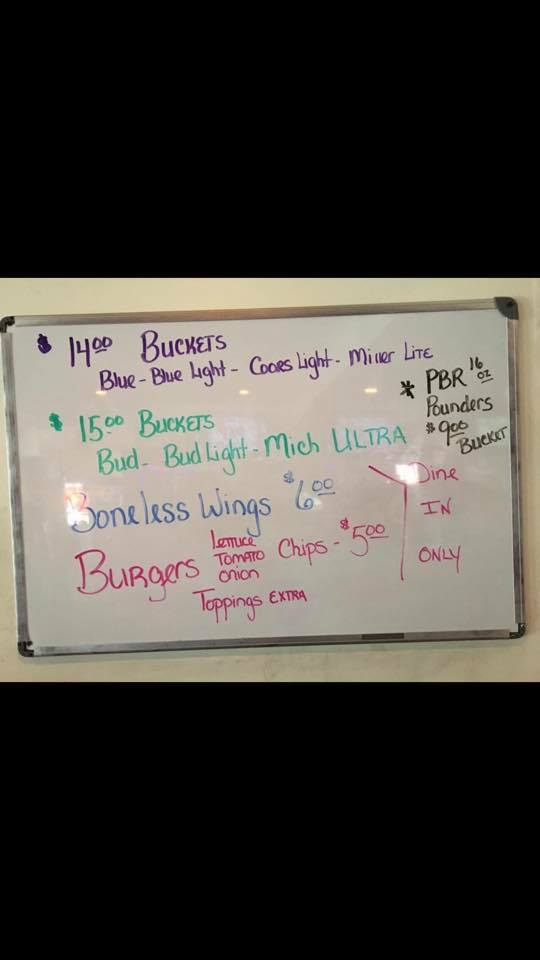 $ 14.00 BUCKETS
Blue - Blue Light - Coors Light - Miller Lite
* PBR 16 oz
Pounders
$9.00
BUCKET
$ 15.00 BUCKETS
Bud - Bud Light - Mich ULTRA
Boneless Wings $6.00
Dine
IN
ONLY
Burgers Lettuce Tomato Onion Chips - $5.00
Toppings EXTRA